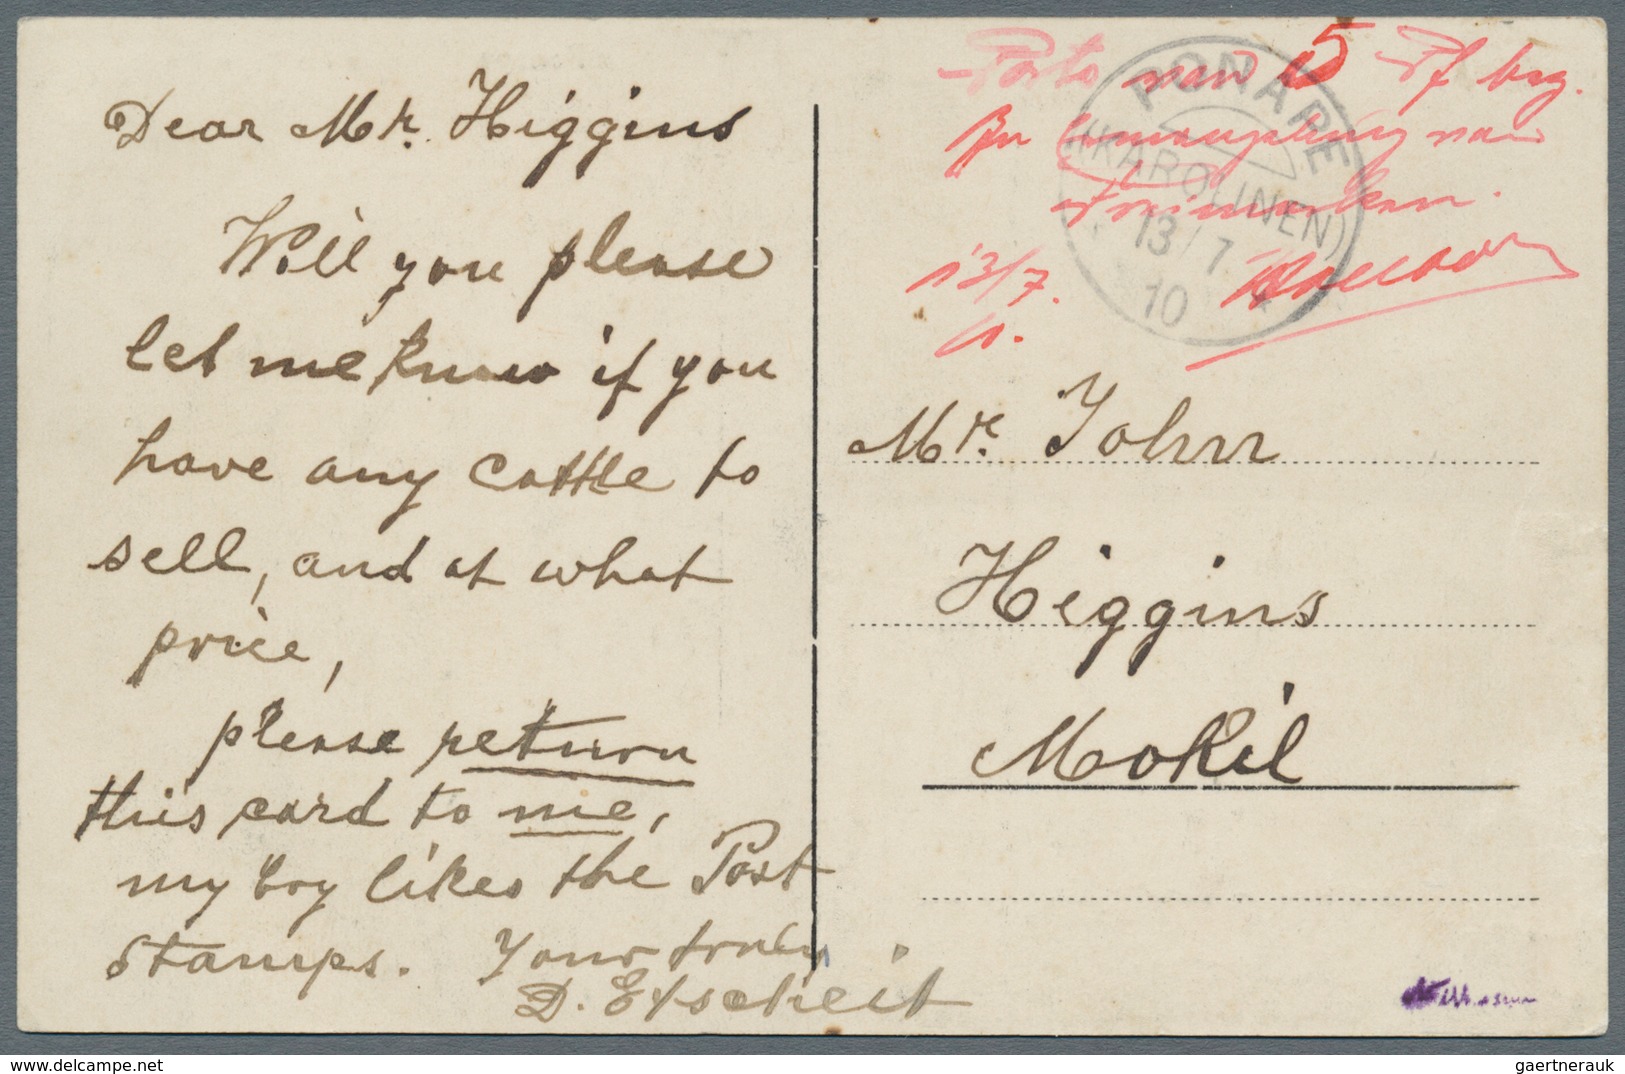 Dear Mr. Higgins
Will you please
let me know if you
have any cattle to
sell, and at what
price,
please return
this card to me,
my boy likes the Post
stamps. Your truly
D. Etscheit
Porto von 5 Pf bez.
In Ermangelung von
Freimarken.
13/7.
10.
PONAPE
(KAROLINEN)
13/7
10
Mr. John
Higgins
Mokil
gaertnerauk@delcampe.net